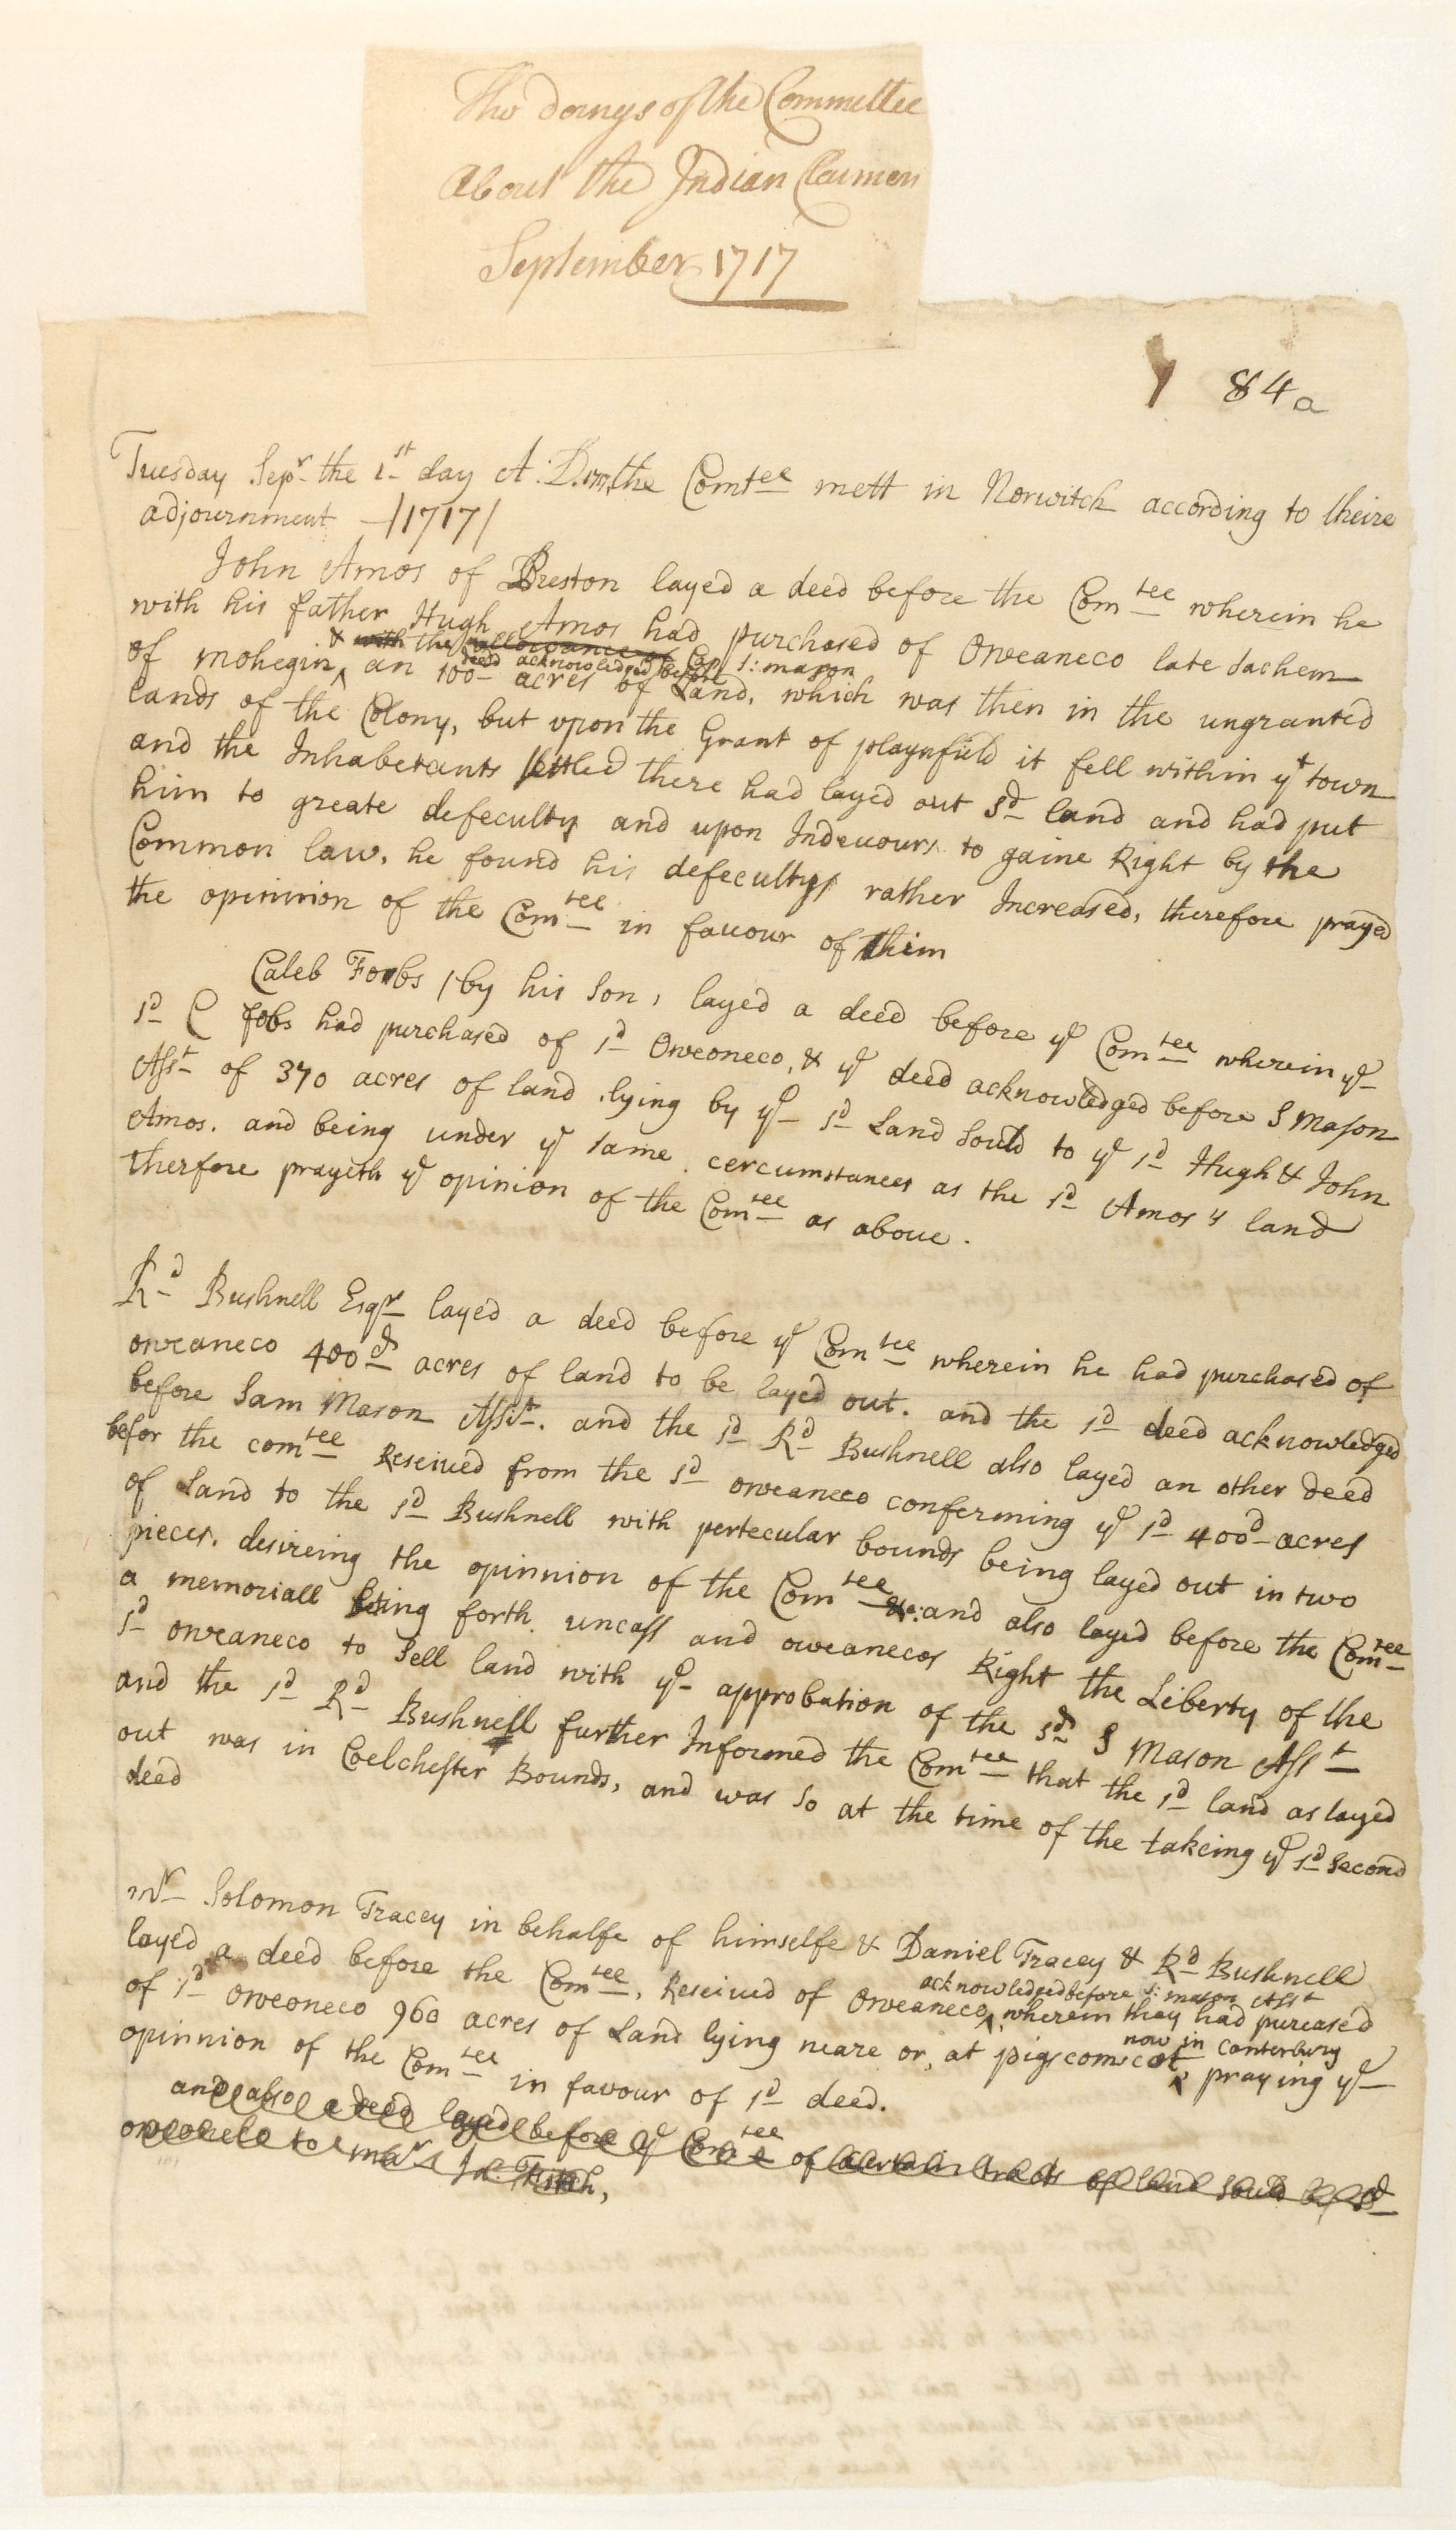 The doings of the Committee
About the Indian Claimes
September 1717
84a
Tuesday Sepr the 1st day A:D.1717, the Comtee mett in Norwitch according to theire
adjournment /1717/
John Amos of Preston layed a deed before the Comtee wherein he
with his father Hugh Amos had purchased of Oweaneco late Sachem
& with the allowance of Cap S: mason
deed acknowledged before
of mohegin ^ an 100 acres of Land, which was then in the ungranted
lands of the Colony, but upon the Grant of playnfield it fell within yt town
and the Inhabetants settled there had layed out sd land and had put
him to greate defeculty and upon Indeuours to gaine Right by the
Common law, he found his defecultys rather Increased, therefore prayed
the opinnion of the Comtee in favour of them
Caleb Forbs / by his Son, layed a deed before ye Comtee wherein ye
sd C fobs had purchased of sd Oweoneco, & ye deed acknowledged before S Mason
Asst of 370 acres of land lying by ye sd Land Sould to ye sd Hugh & John
Amos. and being under ye same cercumstances as the sd Amos's land
therfore prayeth ye opinion of the Comtee as aboue.
Rd Bushnell Esqr layed a deed before ye Comtee wherein he had purchased of
oweaneco 400d acres of land to be layed out. and the sd deed acknowledged
before Sam Mason Assit. and the sd Rd Bushnell also layed an other deed
befor the comtee Reseiued from the sd oweaneco conferming ye sd 400d acres
of Land to the sd Bushnell with pertecular bounds being layed out in two
pieces. desireing the opinnion of the Comtee &c: and also layed before the Comtee
a memoriall seting forth uncass and owanecos Right the Liberty of the
sd oweaneco to Sell land with ye approbation of the sd S Mason Asst
and the sd Rd Bushnell further Informed the Comtee that the sd land as layed
out was in Coelchester Bounds, and was so at the time of the takeing ye sd Second
deed
mr Solomon Tracey in behalfe of himselfe & Daniel Tracey & Rd Bushnell
layed a deed before the Comtee, Reseiued of Oweaneco ^ wherein they had purcased
acknowledged before S: mason Asst
of sd oweoneco 960 acres of Land lying neare or at pigscomscot ^ praying ye
now in Canterbury
opinnion of the Comtee in favour of sd deed.
and also a deed layed before ye Comtee of certain tracts of land sould by sd
oweoneco to mar Jn. Fitch,